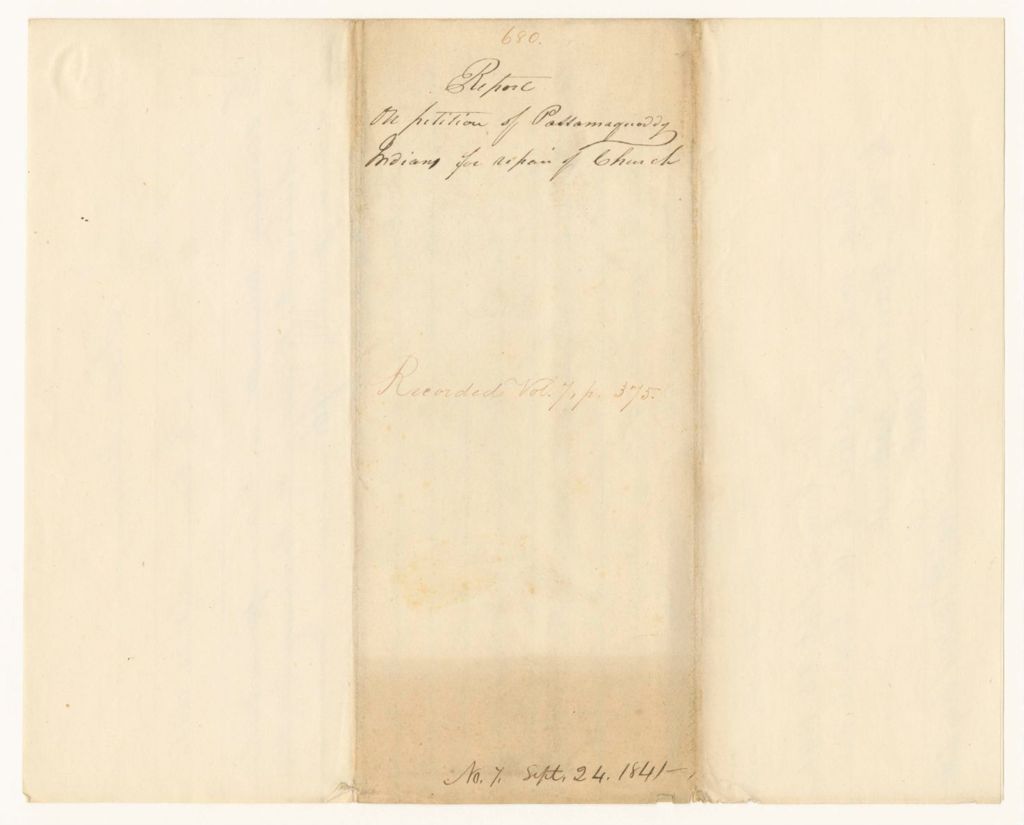 680.
Report
On petition of Passamaquoddy
Indians for repair of Church
Recorded Vol. 7, p. 375.
No. 7. Sept. 24. 1841-